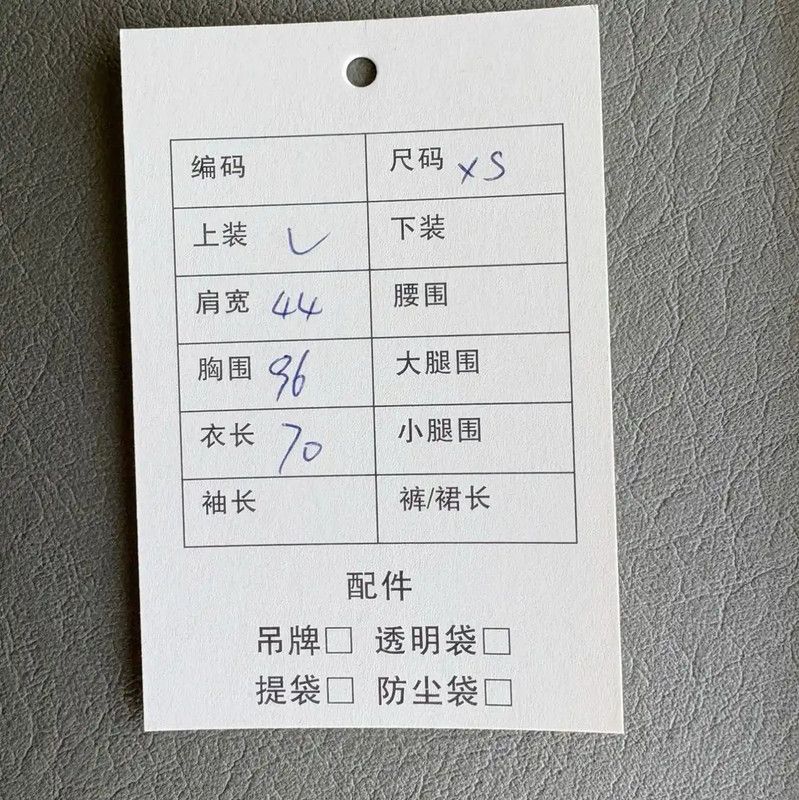 编码 尺码 XS
上装 ✓ 下装
肩宽 44 腰围
胸围 96 大腿围
衣长 70 小腿围
袖长 裤/裙长
配件
吊牌□ 透明袋□
提袋□ 防尘袋□